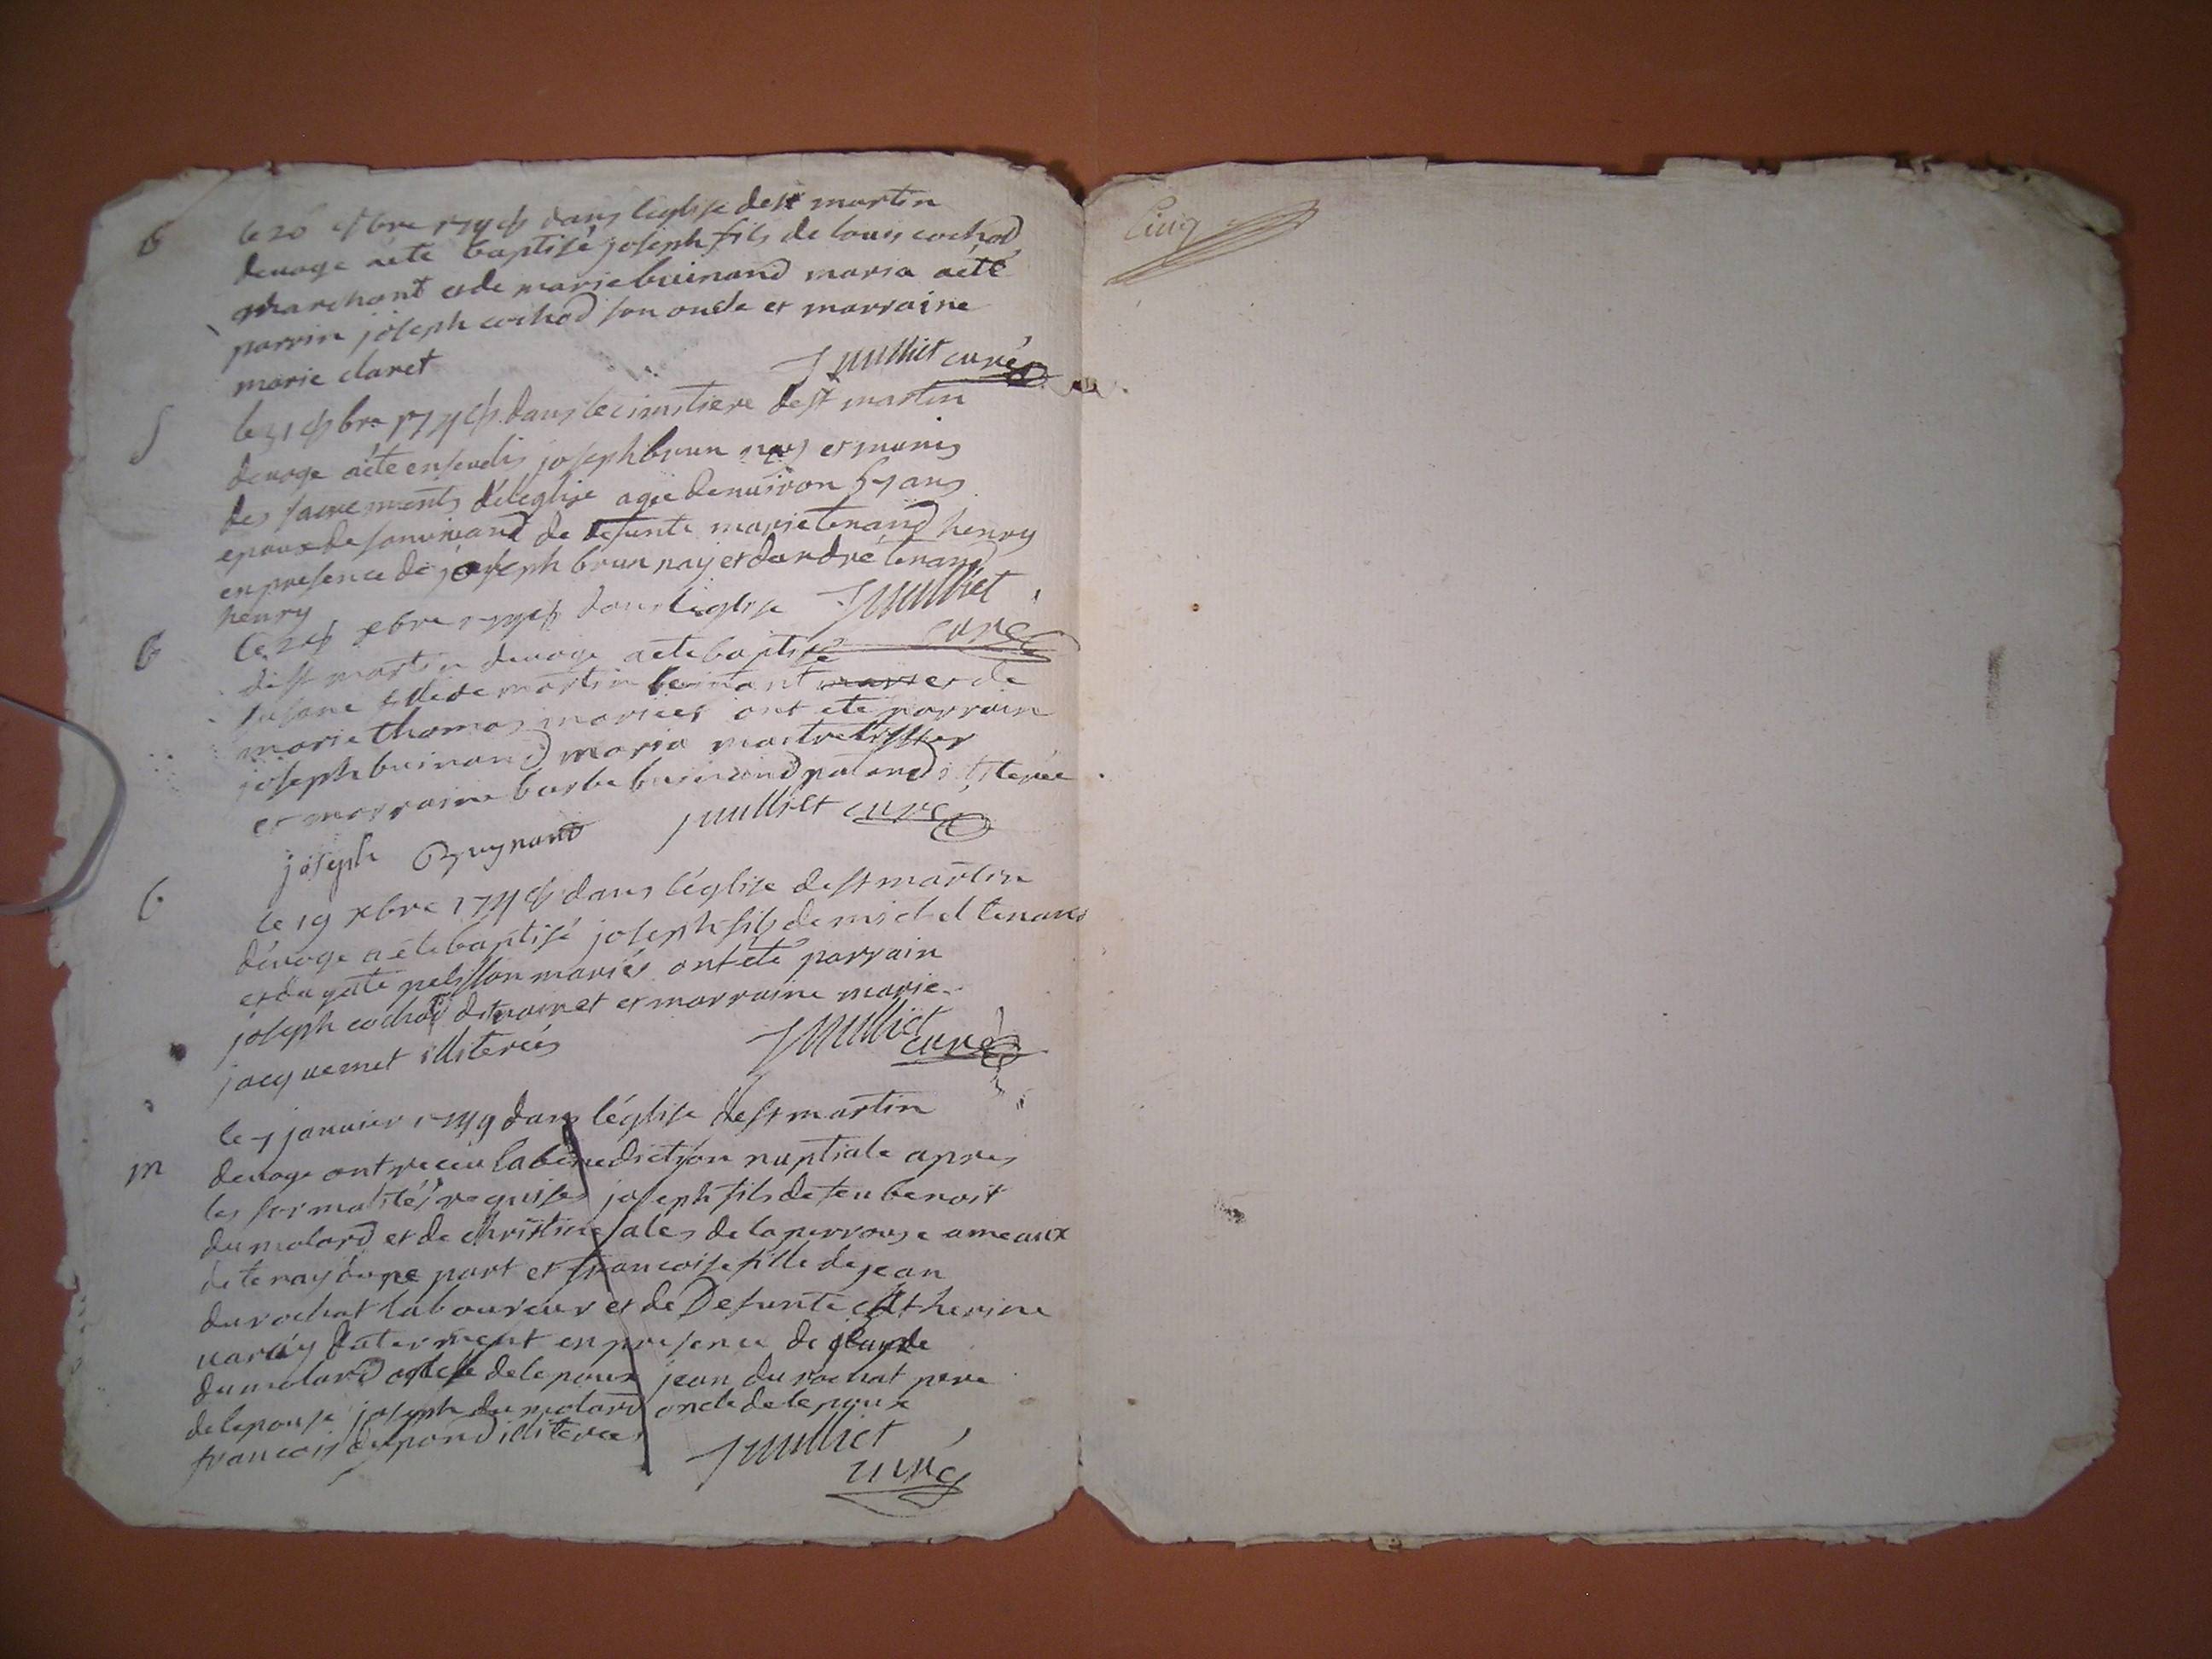 B
le 20 dans l'eglise de st martin
devoge aété baptisé joseph fils de louis cochod
marchant et de marie buinand maria aété
parrin joseph cochod son oncle et marraine
marie claret juilliet curé
S
le 31 dans le cimitiere de st martin
devoge aété enseveli joseph brun nay et munis
des sacrements de leglise agé denviron 57 ans
epoux de de defunte marie tenand henry
en presence de joseph brun nay et dandré tenand
henry juilliet
curé
B
le xbre dans leglise
de st martin devoge aété baptisé
susane fille de martin buinant et de
marie thomas mariees ont eté parrain
joseph buinand maria
et marraine barbe buinand paland
joseph Buynand juilliet curé
B
le 19 xbre dans l'église de st martin
devoge a été baptisé joseph fils de michel tenand
et dagate mariés ont été parrain
joseph cochod dit et marraine marie
jacquemet illiterés juilliet
curé
M
le 7 janvier dans l'église de st martin
devoge ont receu la benediction nuptiale apres
les formalités requises joseph fils de feu benoit
dumolard et de christine sales de la perrouse ameaux
de tenay d'une part et francoise fille de jean
durochat laboureur et de Defunte catherine
en presence de claude
dumolard oncle de lepoux jean durochat pere
de lepouse joseph dumolard oncle de lepoux
francois illiterees juilliet
curé
Cinq